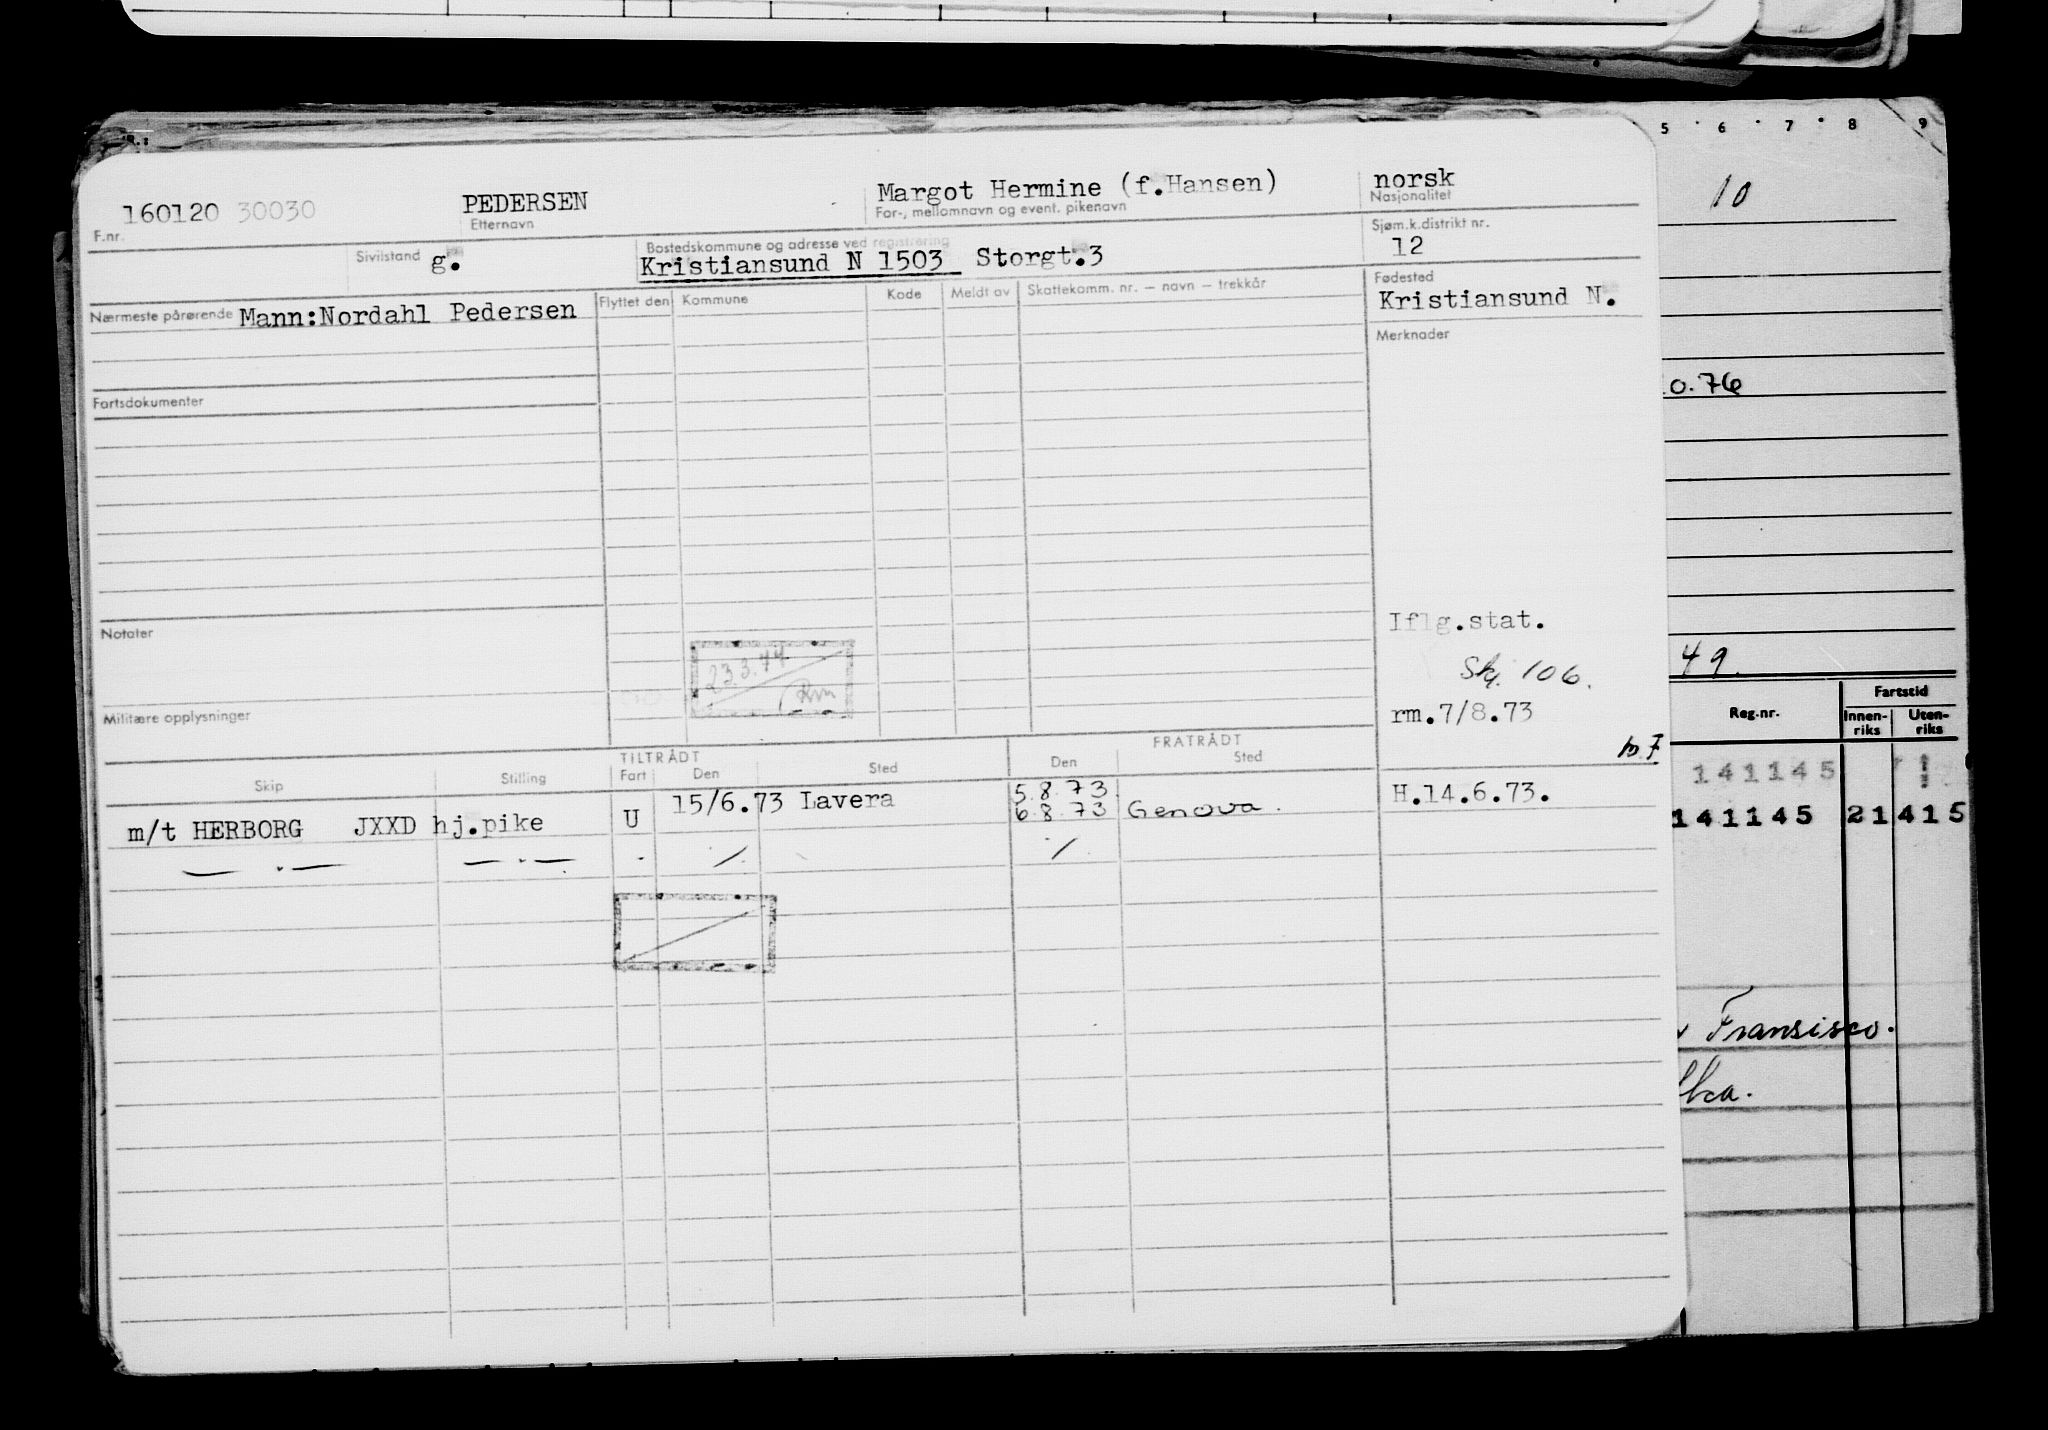 160120 30030
F.nr.
PEDERSEN
Etternavn
Margot Hermine (f.Hansen)
For-, mellomnavn og event. pikenavn
norsk
Nasjonalitet
Sivilstand g.
Bostedskommune og adresse ved registrering
Kristiansund N 1503 Storgt.3
Sjøm.k.distrikt nr.
12
Nærmeste pårørende Mann:Nordahl Pedersen
Flyttet den Kommune Kode Meldt av Skattekomm. nr. — navn — trekkår
Fødested
Kristiansund N.
Merknader
Fartsdokumenter
Notater
23.3.74
Iflg.stat.
106.
rm.7/8.73
Militære opplysninger
TILTRÅDT FRATRÅDT
Skip Stilling Fart Den Sted Den Sted
m/t HERBORG JXXD hj.pike U 15/6.73 Lavera 5.8.73 H.14.6.73.
6.8.73 Genova.
— . — — . — . /. /.
5 6 7 8 9
10
0.76
49.
Reg.nr. Fartstid
Innen-riks Uten-riks
141145
141145 21 415
Fransisco.